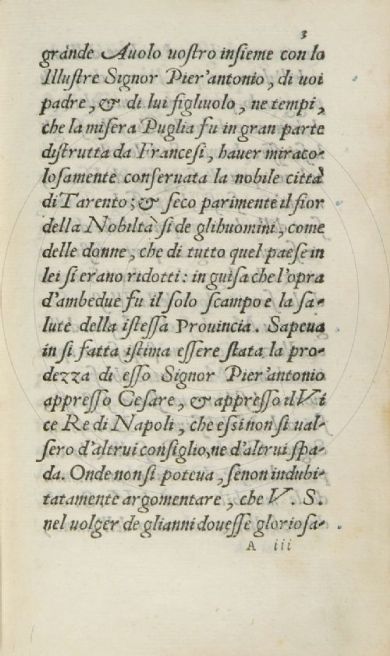 3
grande Auolo uostro insieme con lo
Illustre Signor Pier'antonio, di uoi
padre, & di lui figliuolo, ne tempi,
che la misera Puglia fu in gran parte
distrutta da Francesi, hauer miraco-
losamente conseruata la nobile città
di Tarento; & seco parimente il fior
della Nobiltà si de glihuomini, come
delle donne, che di tutto quel paese in
lei si erano ridotti: in guisa che l'opra
d'ambedue fu il solo scampo e la sa-
lute della istessa Prouincia. Sapeua
in si fatta istima essere stata la pro-
dezza di esso Signor Pier'antonio
appresso Cesare, & appresso il Vi
ce Re di Napoli, che essi non si ual-
sero d'altrui consiglio, ne d'altrui spa-
da. Onde non si poteua, senon indubi-
tatamente argomentare, che V. S.
nel uolger de glianni douesse gloriosa-
A iii